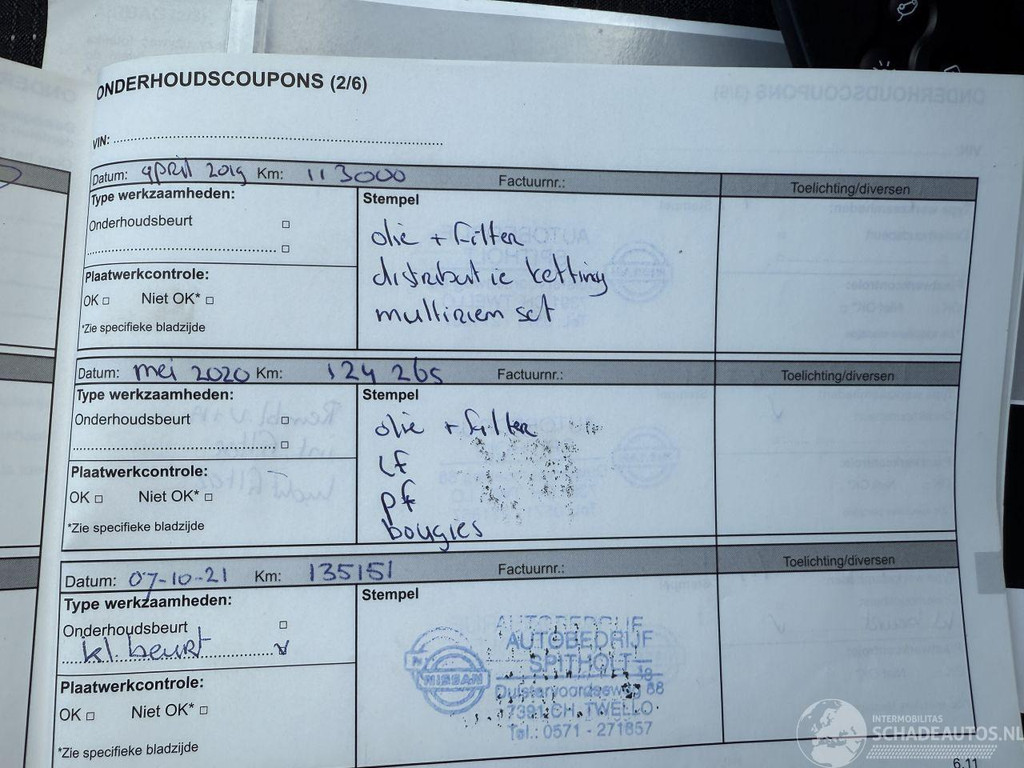 ONDERHOUDSCOUPONS (2/6)
VIN:
Datum: april 2019 Km: 113000 Factuurnr.: Toelichting/diversen
Type werkzaamheden:
Stempel
Onderhoudsbeurt
olie + filter
distributie ketting
multiriem set
Plaatwerkcontrole:
OK Niet OK*
*Zie specifieke bladzijde
Datum: mei 2020 Km: 124 265 Factuurnr.: Toelichting/diversen
Type werkzaamheden:
Stempel
Onderhoudsbeurt
olie + filter
lf
pf
bougies
Plaatwerkcontrole:
OK Niet OK*
*Zie specifieke bladzijde
Datum: 07-10-21 Km: 135151 Factuurnr.: Toelichting/diversen
Type werkzaamheden:
Stempel
Onderhoudsbeurt
kl. beurt
Plaatwerkcontrole:
OK Niet OK*
*Zie specifieke bladzijde
NISSAN
AUTOBEDRIJF
AUTOBEDRIJF
SPITHOLT
Duistervoordseweg 88
7391 CH TWELLO
Tel.: 0571 - 271657
6.11
INTERMOBILITAS
SCHADEAUTOS.NL